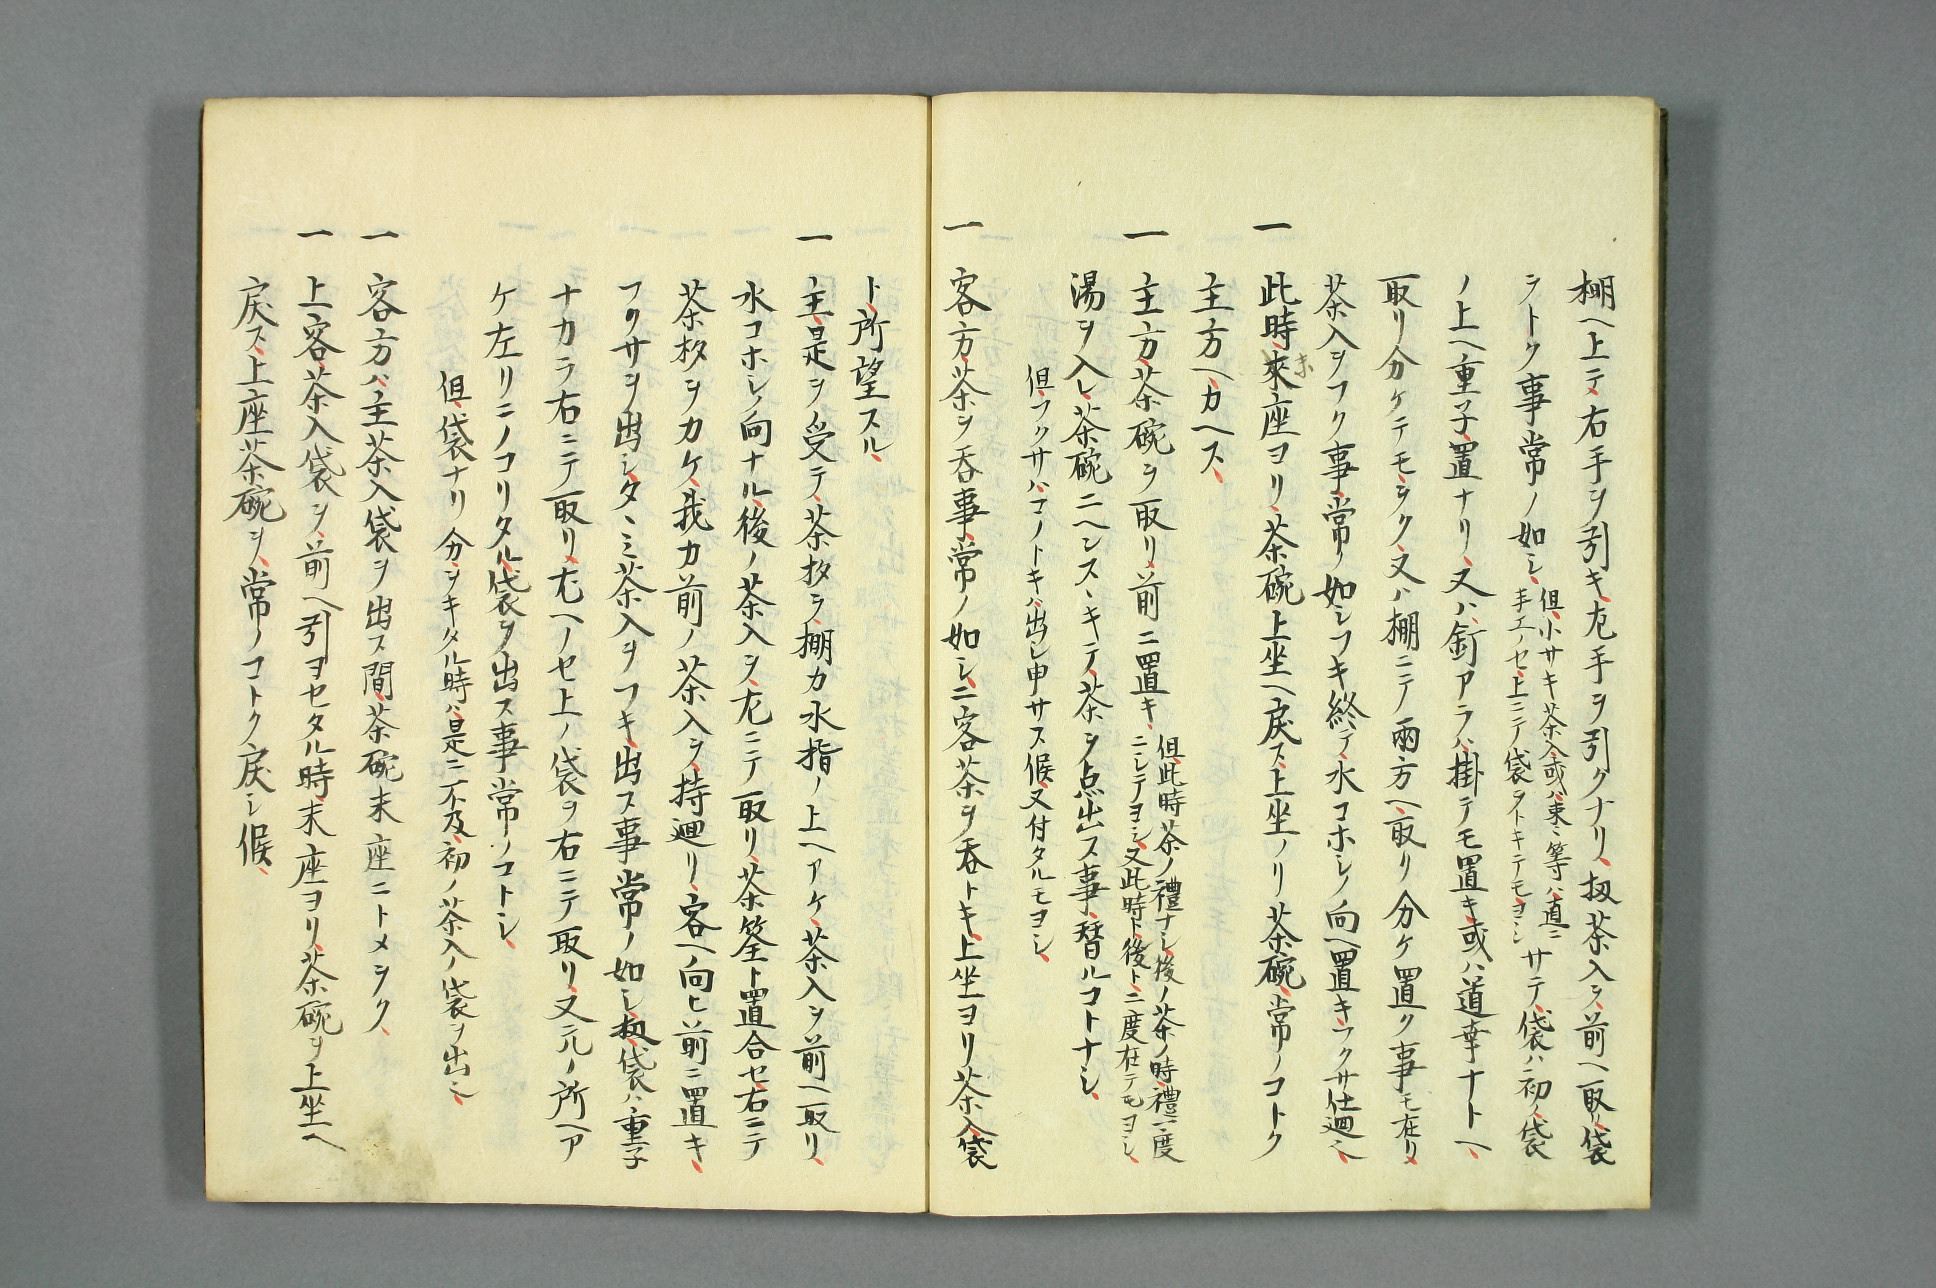 棚ヘ上テ、右手ヲ引キ、左手ヲ引クナリ、扨茶入ヲ、前ヘ取リ、袋
ヲトク事、常ノ如シ、
但、小サキ茶入、或ハ、棗ミ等ハ、直ニ
手エノセ、上ニテ袋ヲトキテモヨシ
サテ、袋ハ、初ノ袋
ノ上ヘ重子、置ナリ、又ハ、釘アラハ、掛テモ置キ、或ハ、道幸ナトヘ、
取リ分ケテモヲク、又ハ棚ニテ両方ヘ、取リ分ケ置ク事モ在リ、
茶入ヲフク事、常ノ如シ、フキ終テ、水コホシノ向ヘ置キ、フクサ仕廻ヘ、
一 此時、來座ヨリ、茶碗上坐ヘ戻ス、上坐ノリ茶碗、常ノコトク
末
主方ヘ、カヘス、
一 主方、茶碗ヲ取リ、前ニ置キ、
但、此時、茶ノ禮ナシ、後ノ茶ノ時、禮一度
ニシテヨシ、又此時ト、後ト、二度在テモヨシ、
湯ヲ入レ、茶碗ニヘンスヽキテ、茶ヲ点出ス事、替ルコトナシ、
但、フクサハ、コノトキハ、出シ申サス候、又付タルモヨシ、
一 客方、茶ヲ呑事、常ノ如シ、二客茶ヲ呑トキ、上坐ヨリ、茶入、袋
ト、所望スル、
一 主、是ヲノ受テ、茶杓ヲ、棚カ水指ノ上ヘアケ、茶入ヲ前ヘ取リ、
水コホシノ向ナル、後ノ茶入ヲ、左ニテ取リ、茶筌ト置合セ、右ニテ
茶杓ヲカケ、我カ前ノ茶入ヲ、持廻リ、客ヘ向ヒ、前ニ置キ、
フクサヲ出シ、タヽミ、茶入ヲフキ、出ス事常ノ如シ、扨、袋ハ、重子
ナカラ右ニテ取リ、左ヘノセ、上ノ袋ヲ右ニテ取リ、又元ノ所ヘア
ケ、左リニノコリタル、袋ヲ出ス事、常ノコトシ、
但、袋ナリ分ヲキタル時ハ、是ニ不及、初ノ茶入ノ袋ヲ出シ、
一 客方ハ、主茶入袋ヲ出ス間、茶碗末座ニトメヲク、
一 上客、茶入袋ヲ、前ヘ引ヨセタル時、末座ヨリ、茶碗ヲ上坐ヘ
戻ス、上座茶碗ヲ、常ノコトク戻シ候、